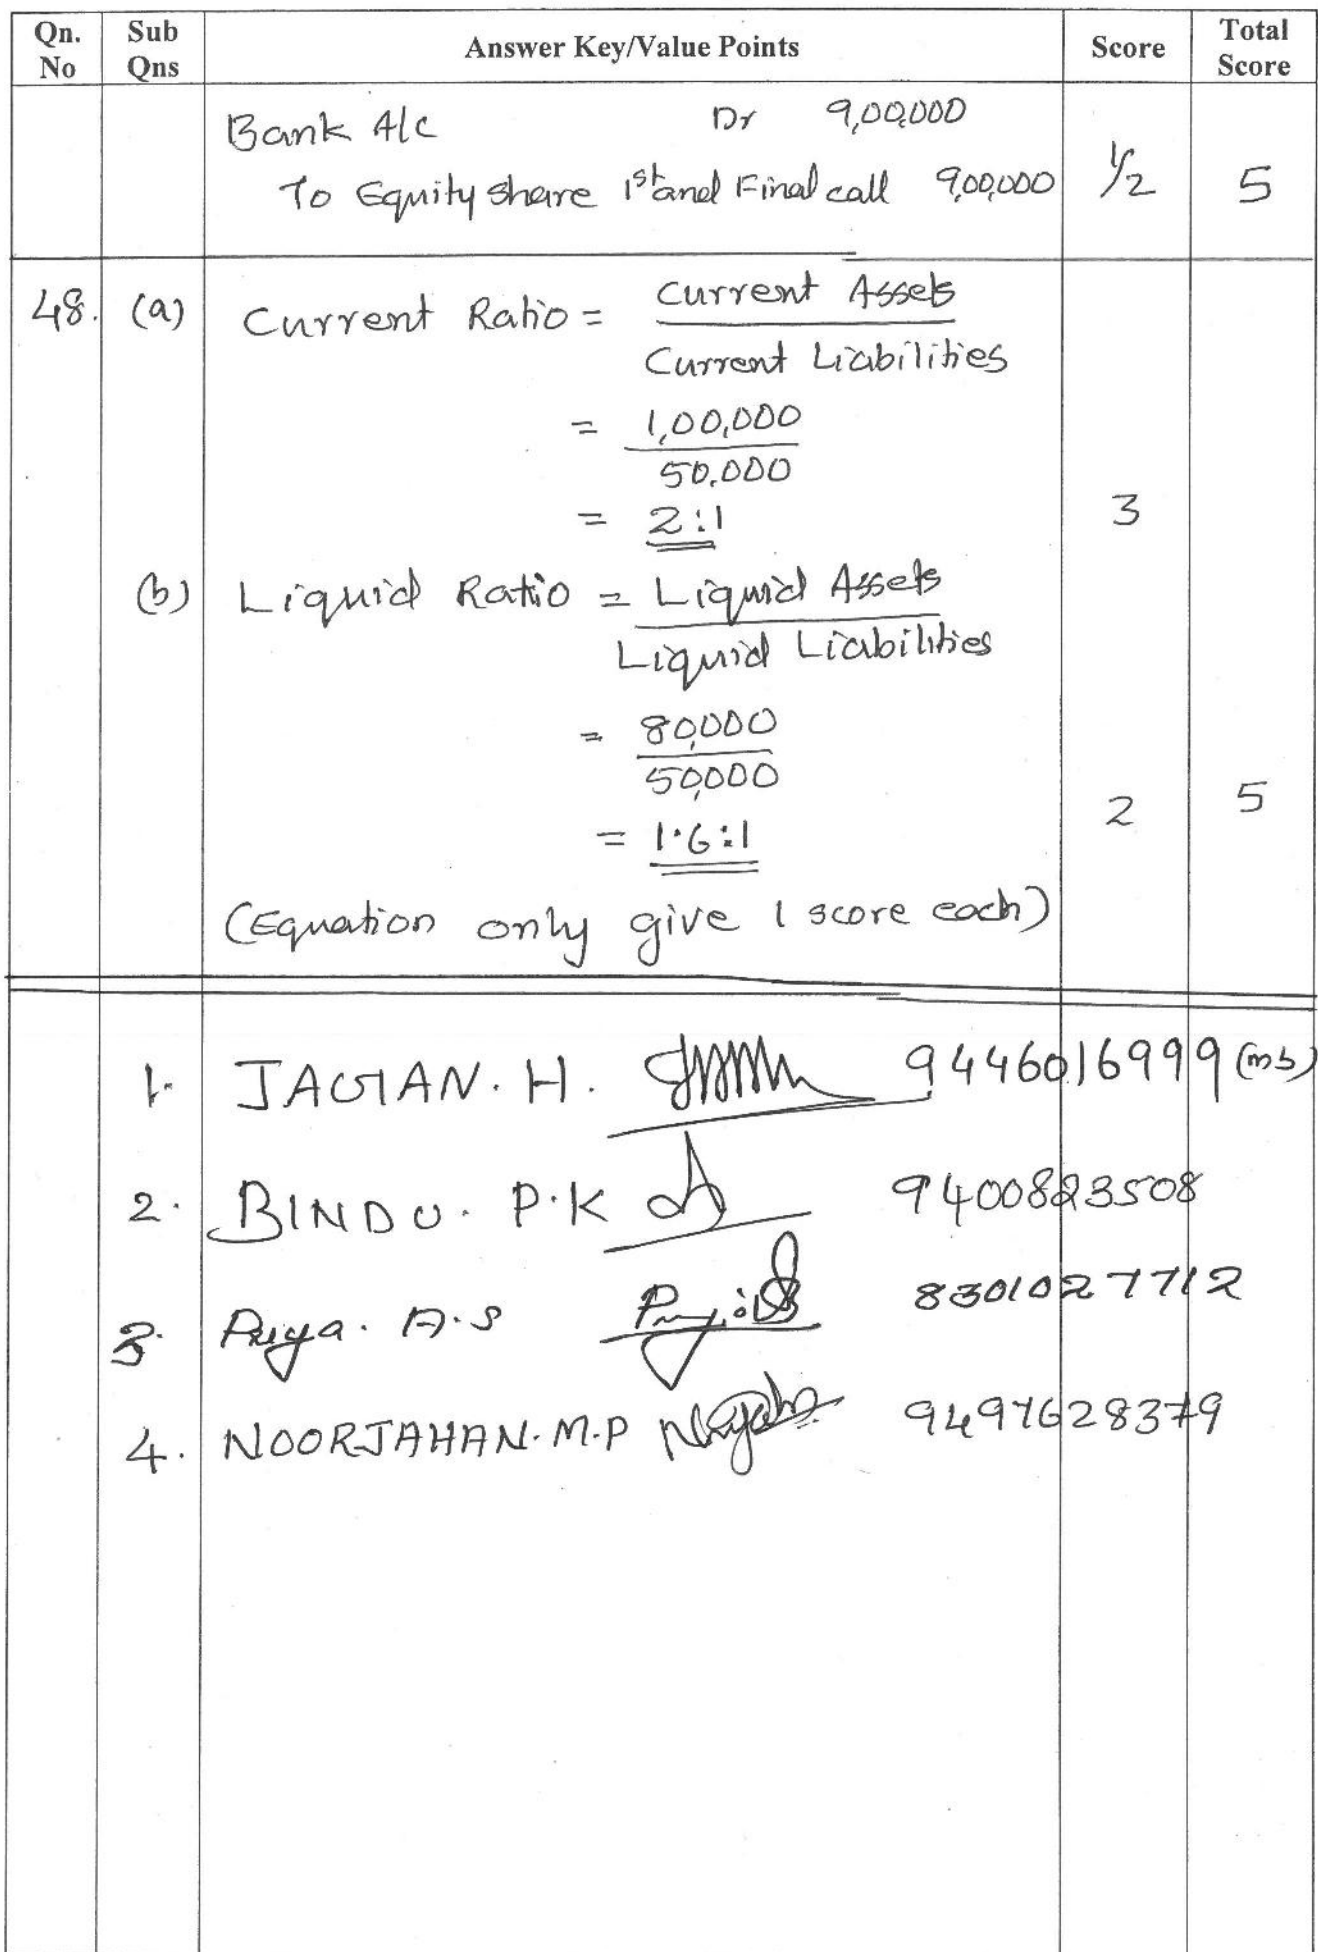 Qn. No Sub Qns Answer Key/Value Points Score Total Score
Bank A/c Dr 9,00,000
To Equity share 1st and Final call 9,00,000 1/2 5
48. (a) Current Ratio = Current Assets
Current Liabilities
= 1,00,000
50,000
= 2:1 3
(b) Liquid Ratio = Liquid Assets
Liquid Liabilities
= 80,000
50,000
= 1.6:1 2 5
(Equation only give 1 score each)
1. JAGAN. H. 9446016999 (mb)
2. BINDU. P.K 9400823508
3. Priya. A.S 8301027712
4. NOORJAHAN. M.P 9497628379